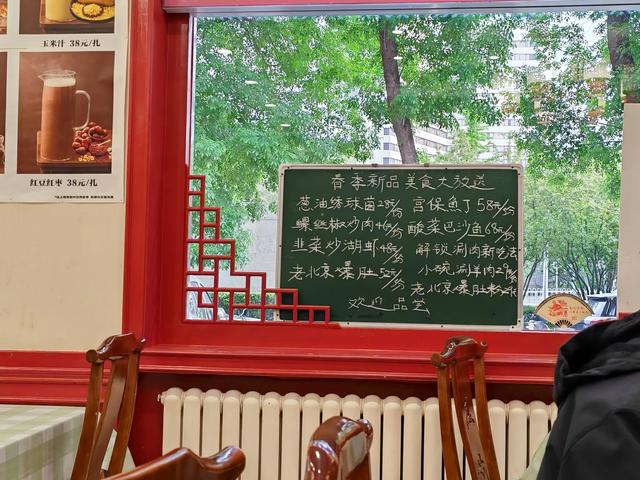 玉米汁 38元/扎
红豆红枣 38元/扎
春季新品美食大放送
葱油绣球菌28元/份 宫保鱼丁58元/份
螺丝椒炒肉46元/份 酸菜巴沙鱼68元/份
韭菜炒湖虾48元/份 解锁涮肉新吃法
老北京爆肚52元/份 小碗涮羊肉29元/份
老北京爆肚
欢迎品尝